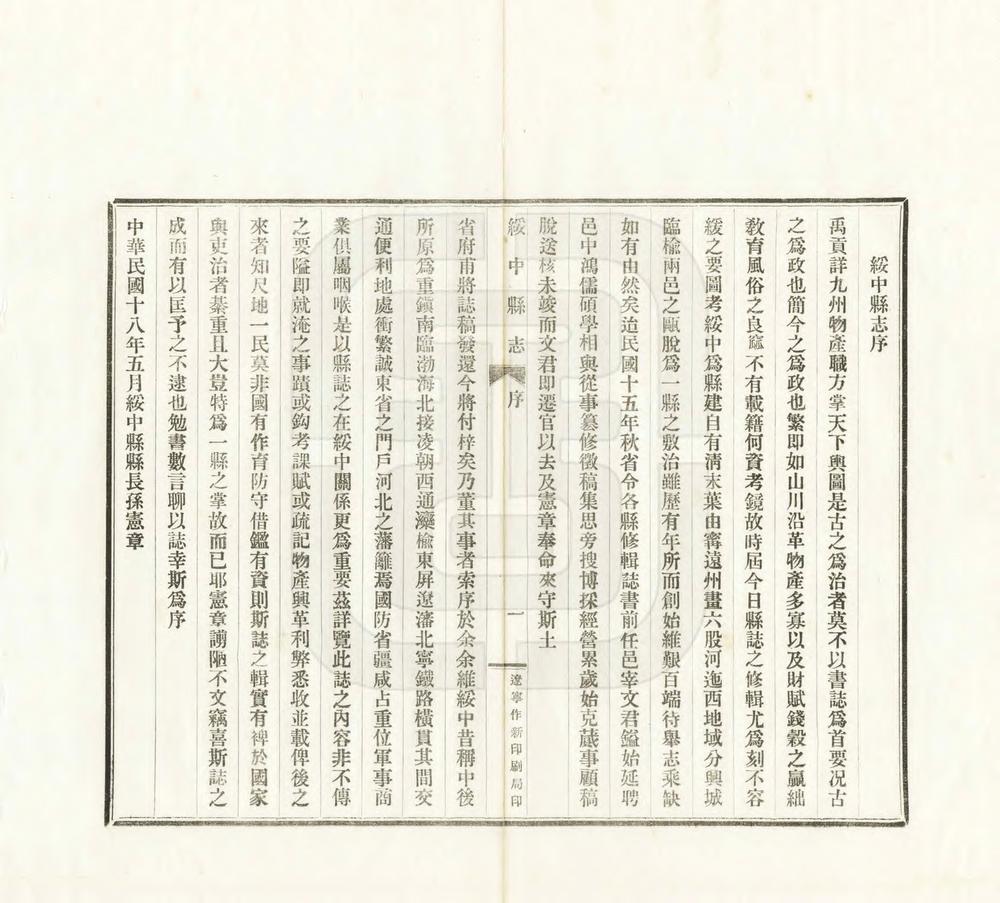 綏中縣志序
禹貢詳九州物產職方掌天下輿圖是古之爲治者莫不以書誌爲首要况古
之爲政也簡今之爲政也繁即如山川沿革物產多寡以及財賦錢穀之贏絀
敎育風俗之良窳不有載籍何資考鏡故時屆今日縣誌之修輯尤爲刻不容
緩之要圖考綏中爲縣建自有淸末葉由寗遠州畫六股河迤西地域分興城
臨楡兩邑之甌脫爲一縣之敷治雖歷有年所而創始維艱百端待舉志乘缺
如有由然矣迨民國十五年秋省令各縣修輯誌書前任邑宰文君鎰始延聘
邑中鴻儒碩學相與從事纂修徵稿集思旁搜博採經營累歲始克蕆事顧稿
脫送核未竣而文君即遷官以去及憲章奉命來守斯土
綏中縣志 序 一 遼寧作新印刷局印
省府甫將誌稿發還今將付梓矣乃董其事者索序於余余維綏中昔稱中後
所原爲重鎭南臨渤海北接凌朝西通灤楡東屏遼瀋北寧鐵路橫貫其間交
通便利地處衝繁誠東省之門戶河北之藩籬焉國防省疆咸占重位軍事商
業俱屬咽喉是以縣誌之在綏中關係更爲重要茲詳覽此誌之內容非不傳
之要隘即就淹之事蹟或鈎考課賦或疏記物產興革利弊悉收並載俾後之
來者知尺地一民莫非國有作育防守借鑑有資則斯誌之輯實有裨於國家
與吏治者綦重且大豈特爲一縣之掌故而已耶憲章譾陋不文竊喜斯誌之
成而有以匡予之不逮也勉書數言聊以誌幸斯爲序
中華民國十八年五月綏中縣縣長孫憲章